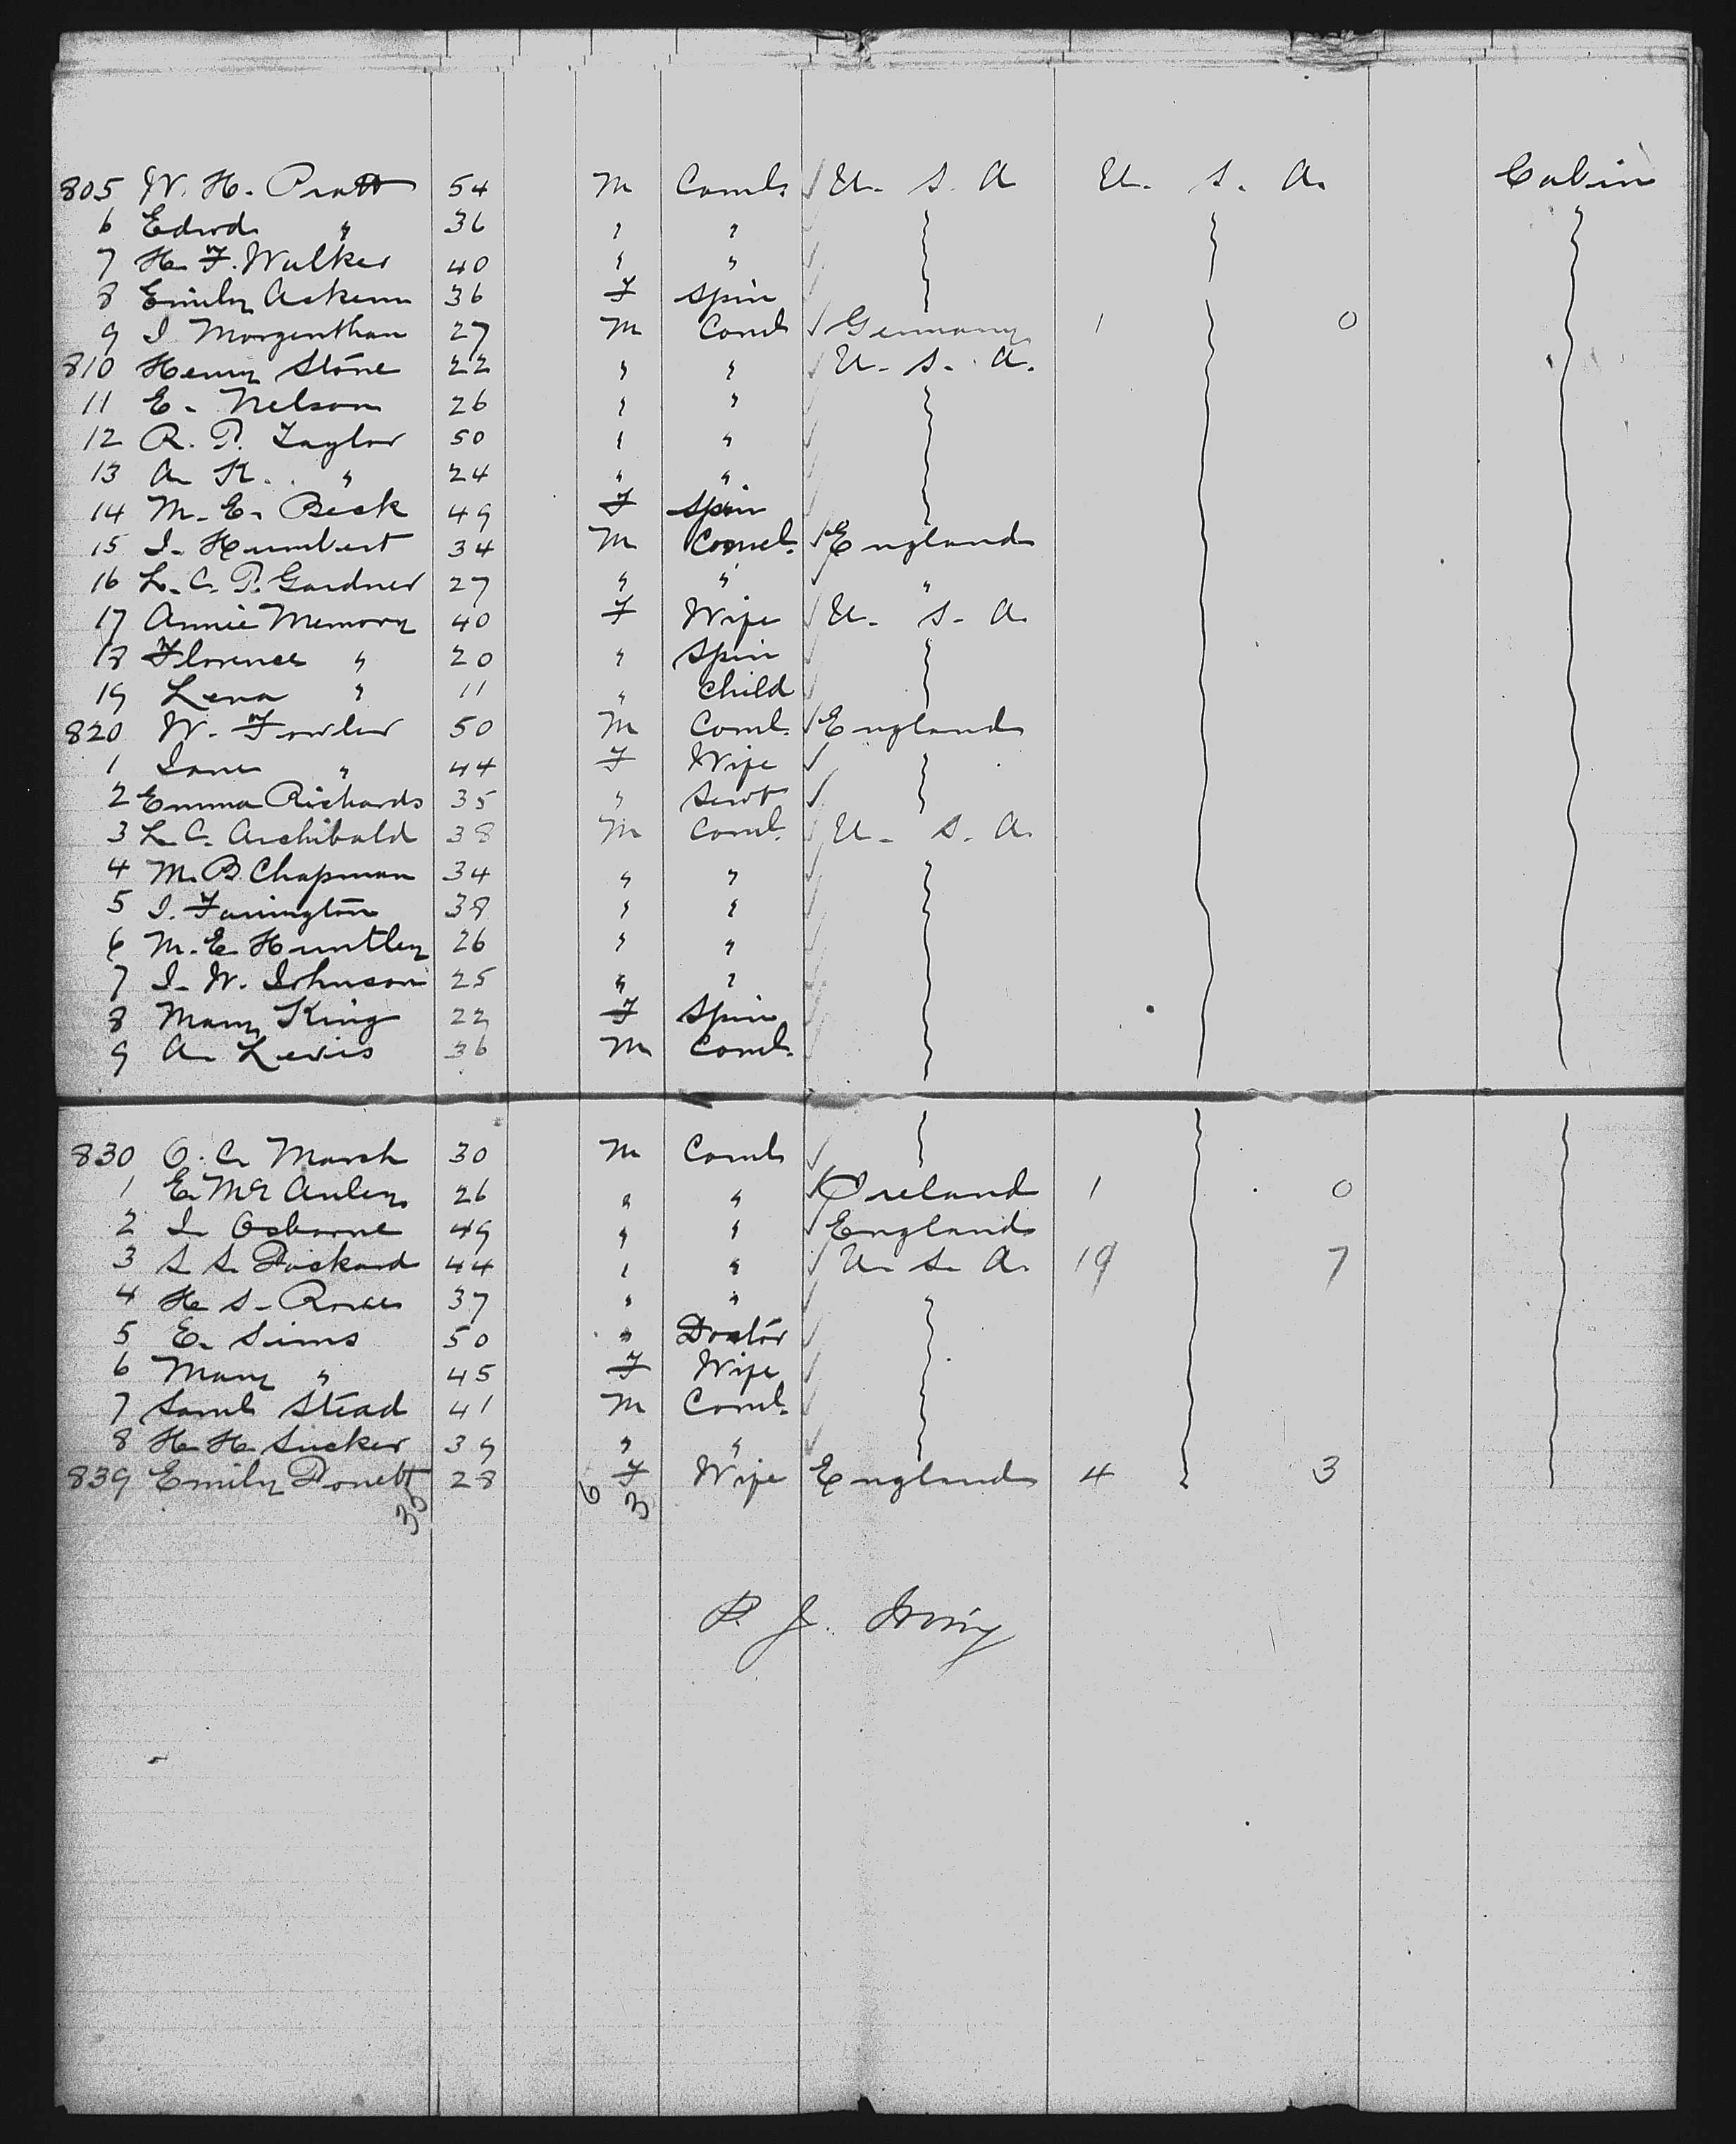 805 W. H. Pratt 54 M Coml. U. S. A U. S. A. Cabin
6 Edwd " 36 " "
7 H. F. Walker 40 " "
8 Emily 36 F Spin
9 J Morgenthau 27 M Coml Germany 1 0
810 Henry Stone 22 " " U. S. A.
11 E. Nelson 26 " "
12 R. P. Taylor 50 " "
13 A K. " 24 " "
14 M. E. Beck 49 F Spin
15 J. Humbert 34 M Coml. England
16 L. C. P. Gardner 27 " " "
17 Annie Memory 40 F Wife U. S. A.
18 Florence " 20 " Spin
19 Lena " 11 " Child
820 W. Fowler 50 M Coml. England
1 Jane " 44 F Wife
2 Emma Richards 35 " Servt
3 L. C. Archibald 38 M Coml. U. S. A.
4 M. B. Chapman 34 " "
5 J. Farrington 38 " "
6 M. E. Huntley 26 " "
7 J. W. Johnson 25 " "
8 Mary King 22 F Spin
9 A. Lewis 36 M Coml.
830 O. C. Marsh 30 M Coml
1 E. McAuley 26 " " Ireland 1 0
2 J. Osborne 49 " " England
3 S. S. Packard 44 " " U. S. A. 19 7
4 H. S. 37 " "
5 E. Sims 50 " Doctor
6 Mary " 45 F Wife
7 Saml. Stead 41 M Coml.
8 H. H. 39 " "
839 Emily 28 F Wife England 4 3
35 6 3
P. J. Irving